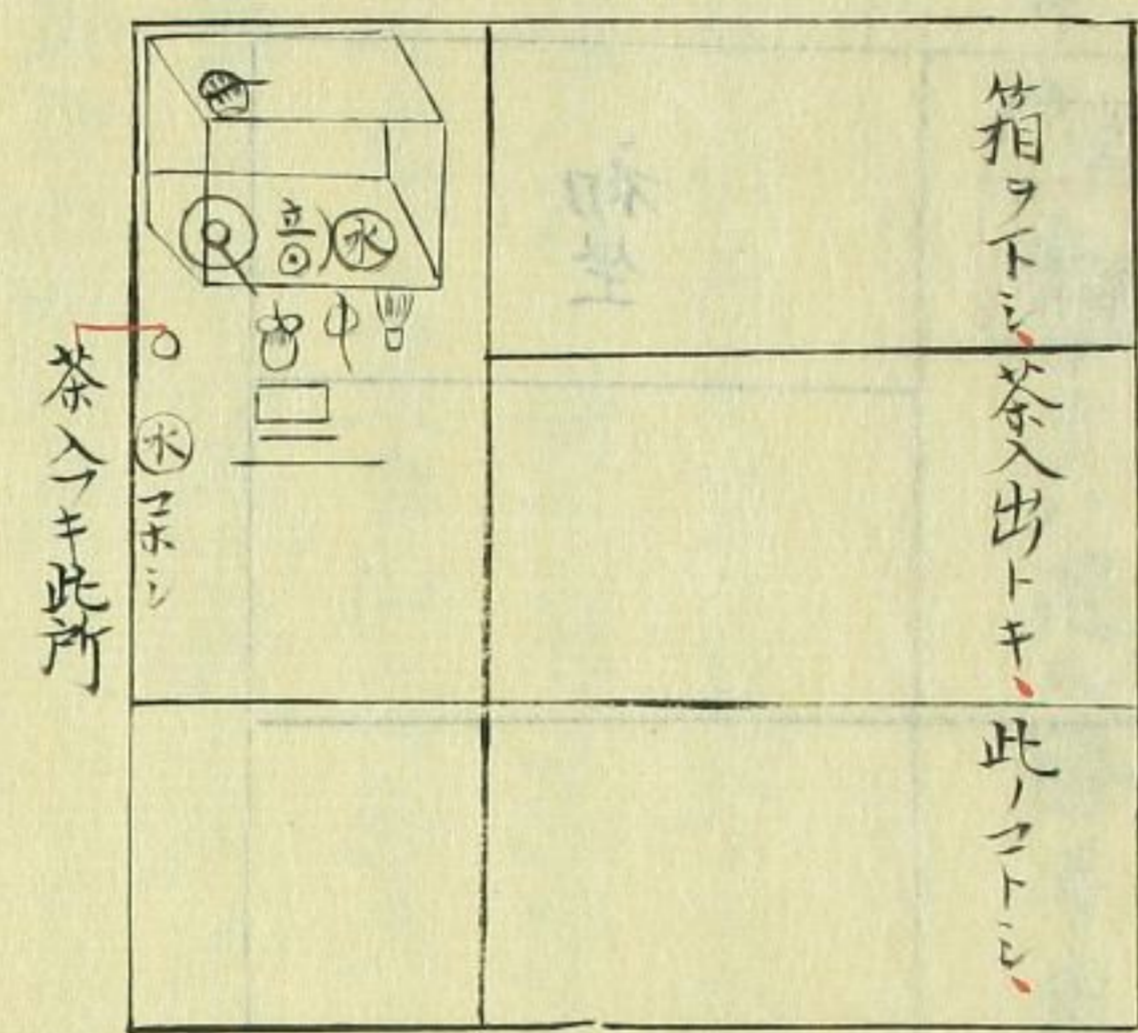 箱ヲ下シ
茶入出トキ
此ノコトシ
水
水コホシ
茶入フキ此所